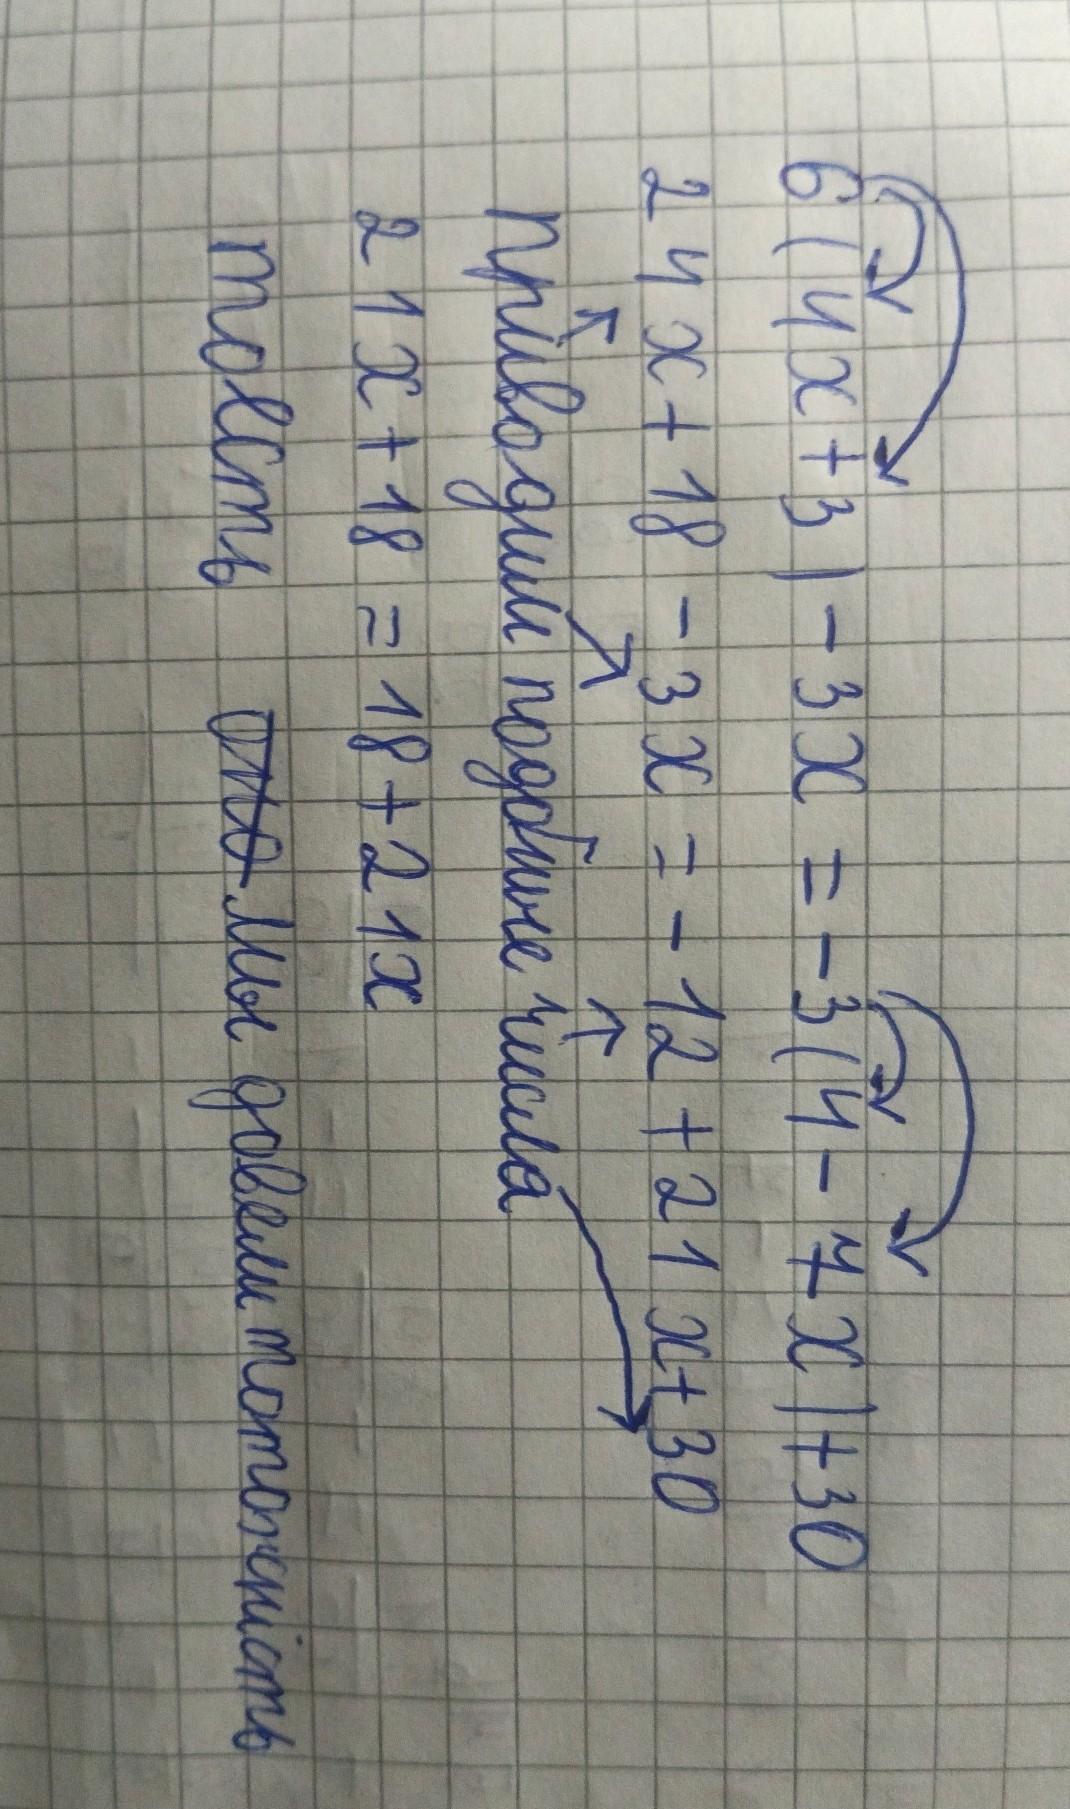 6(4x+3)-3x=-3(4-7x)+30
24x+18-3x=-12+21x+30
приводим подобние числа
21x+18=18+21x
тобсть мы довели тотожність